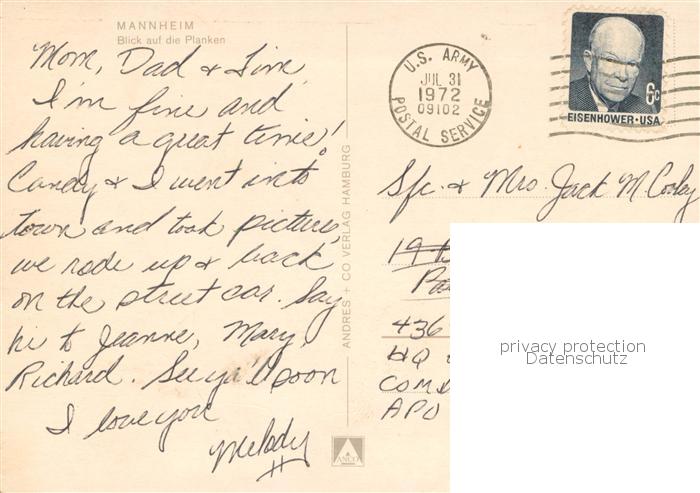 MANNHEIM
Blick auf die Planken
Mom, Dad &
I'm fine and
having a great time!
Candy & I went into
town and took pictures,
we rode up & back
on the street car. Say
hi to Jeanne, Mary,
Richard. See ya'll soon
I love you
Melody
ANDRES + CO VERLAG HAMBURG
ANCO
U.S. ARMY
JUL 31
1972
09102
POSTAL SERVICE
6c
EISENHOWER·USA
Sfc. & Mrs. Jack M.
19
436
HQ
COM
APO
privacy protection
Datenschutz